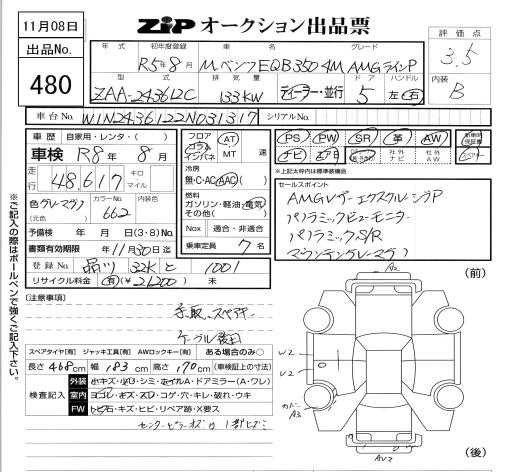 11月08日
ZIP オークション出品票
出品No.
480
評価点
3.5
内装
B
年式 初年度登録 車名 グレード
R5年8月 Mベンツ EQB350 4M AMGラインP
型式 排気量 ドア ハンドル
ZAA-243612C 133KW ディーラー・並行 5 左・右
車台No. W1N2436122N031317 シリアルNo.
車歴 自家用・レンタ・( )
車検 R8年8月
走行 48,617 キロ マイル
色 グレー(マグノ) (元色) カラーNo. 662 内装色
予備検 年 月 日(3・8)No.
書類有効期限 年11月30日迄
登録No. 品川 32K と 1001
リサイクル料金 有(¥21200) 未
フロア コラム インパネ AT MT 速
冷房 無・C・AC・AAC
燃料 ガソリン・軽油・電気 その他( )
Nox 適合・非適合
乗車定員 7名
PS PW SR 革 AW
ナビ エアB 社外ナビ 社外AW
新車時保証書
*上記太枠内は標準装備品
セールスポイント
AMGレザーエクスクルーシブP
パノラミックビューモニター
パノラミックS/R
マウンテングレーマグノ
[注意事項]
ケーブル
スペアタイヤ[有] ジャッキ工具[有] AWロックキー[有] ある場合のみ○
長さ 468cm 幅 183cm 高さ 170cm (車検証上の寸法)
検査記入
外装 小キズ・小凹・シミ・ホイルA・ドアミラー(A・ワレ)
室内 ヨゴレ・キズ・スレ・コゲ・穴・キレ・破れ・ウキ
FW トビ石・キズ・ヒビ・リペア跡・X要ス
センターピラー
(前)
A2
W2
U2
カバー A3
(後)
ご記入の際はボールペンで強くご記入下さい。